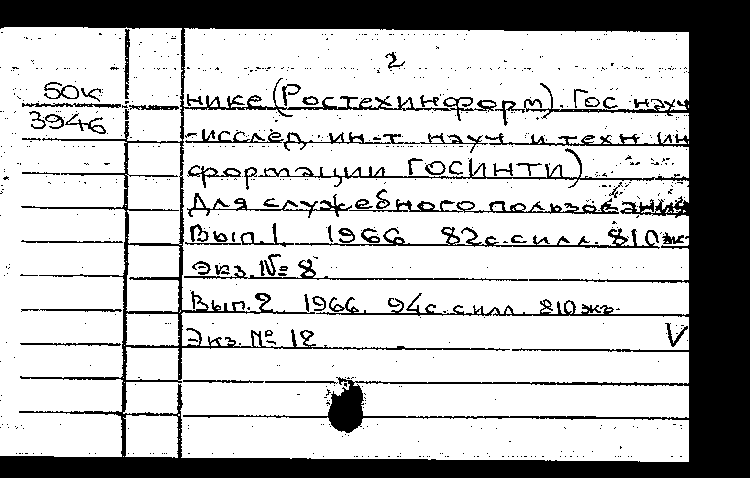 2
50к
3946
нике (Ростехинформ). Гос науч
-исслед. ин-т науч. и техн ин
формации ГОСИНТИ)
Для служебного пользования
Вып.1. 1966 82с.силл. 810эк
Экз. № 8.
Вып.2 1966. 94с.силл. 810экз.
Экз. № 12.
V